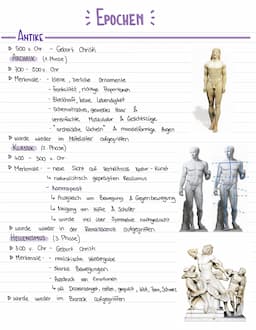 EPOCHEN
ANTIKE
▷ 500 v. Chr - Geburt Christi
ARCHAIK (1. Phase)
▷ 700 - 500 v. Chr
▷ Merkmale: - kleine, zierliche Ornamente
- Frontalität, richtige Proportionen
- Blockhaft, keine Lebendigkeit
- schematisches, gewelltes Haar &
vereinfachte Muskulatur & Gesichtszüge
- "archaisches Lächeln" & mandelförmige Augen
▷ wurde wieder im Mittelalter aufgegriffen
KLASSIK (2. Phase)
▷ 400 - 300 v. Chr.
▷ Merkmale: - neue Sicht auf Verhältnis Natur - Kunst
↳ naturalistisch geprägten Realismus
- Kontrapost
↳ Ausgleich von Bewegung & Gegenbewegung
↳ Neigung von Hüfte & Schulter
↳ wurde viel über Symmetrie nachgedacht
▷ wurde wieder in der Renaissance aufgegriffen
HELLENISMUS (3. Phase)
▷ 300 v. Chr - Geburt Christi
▷ Merkmale: - realistische Wiedergabe
- Starke Bewegungen
- Ausdruck von Emotionen
↳ all. Dramatisch, Wut, Trauer, Schmerz
▷ wurde wieder im Barock aufgegriffen